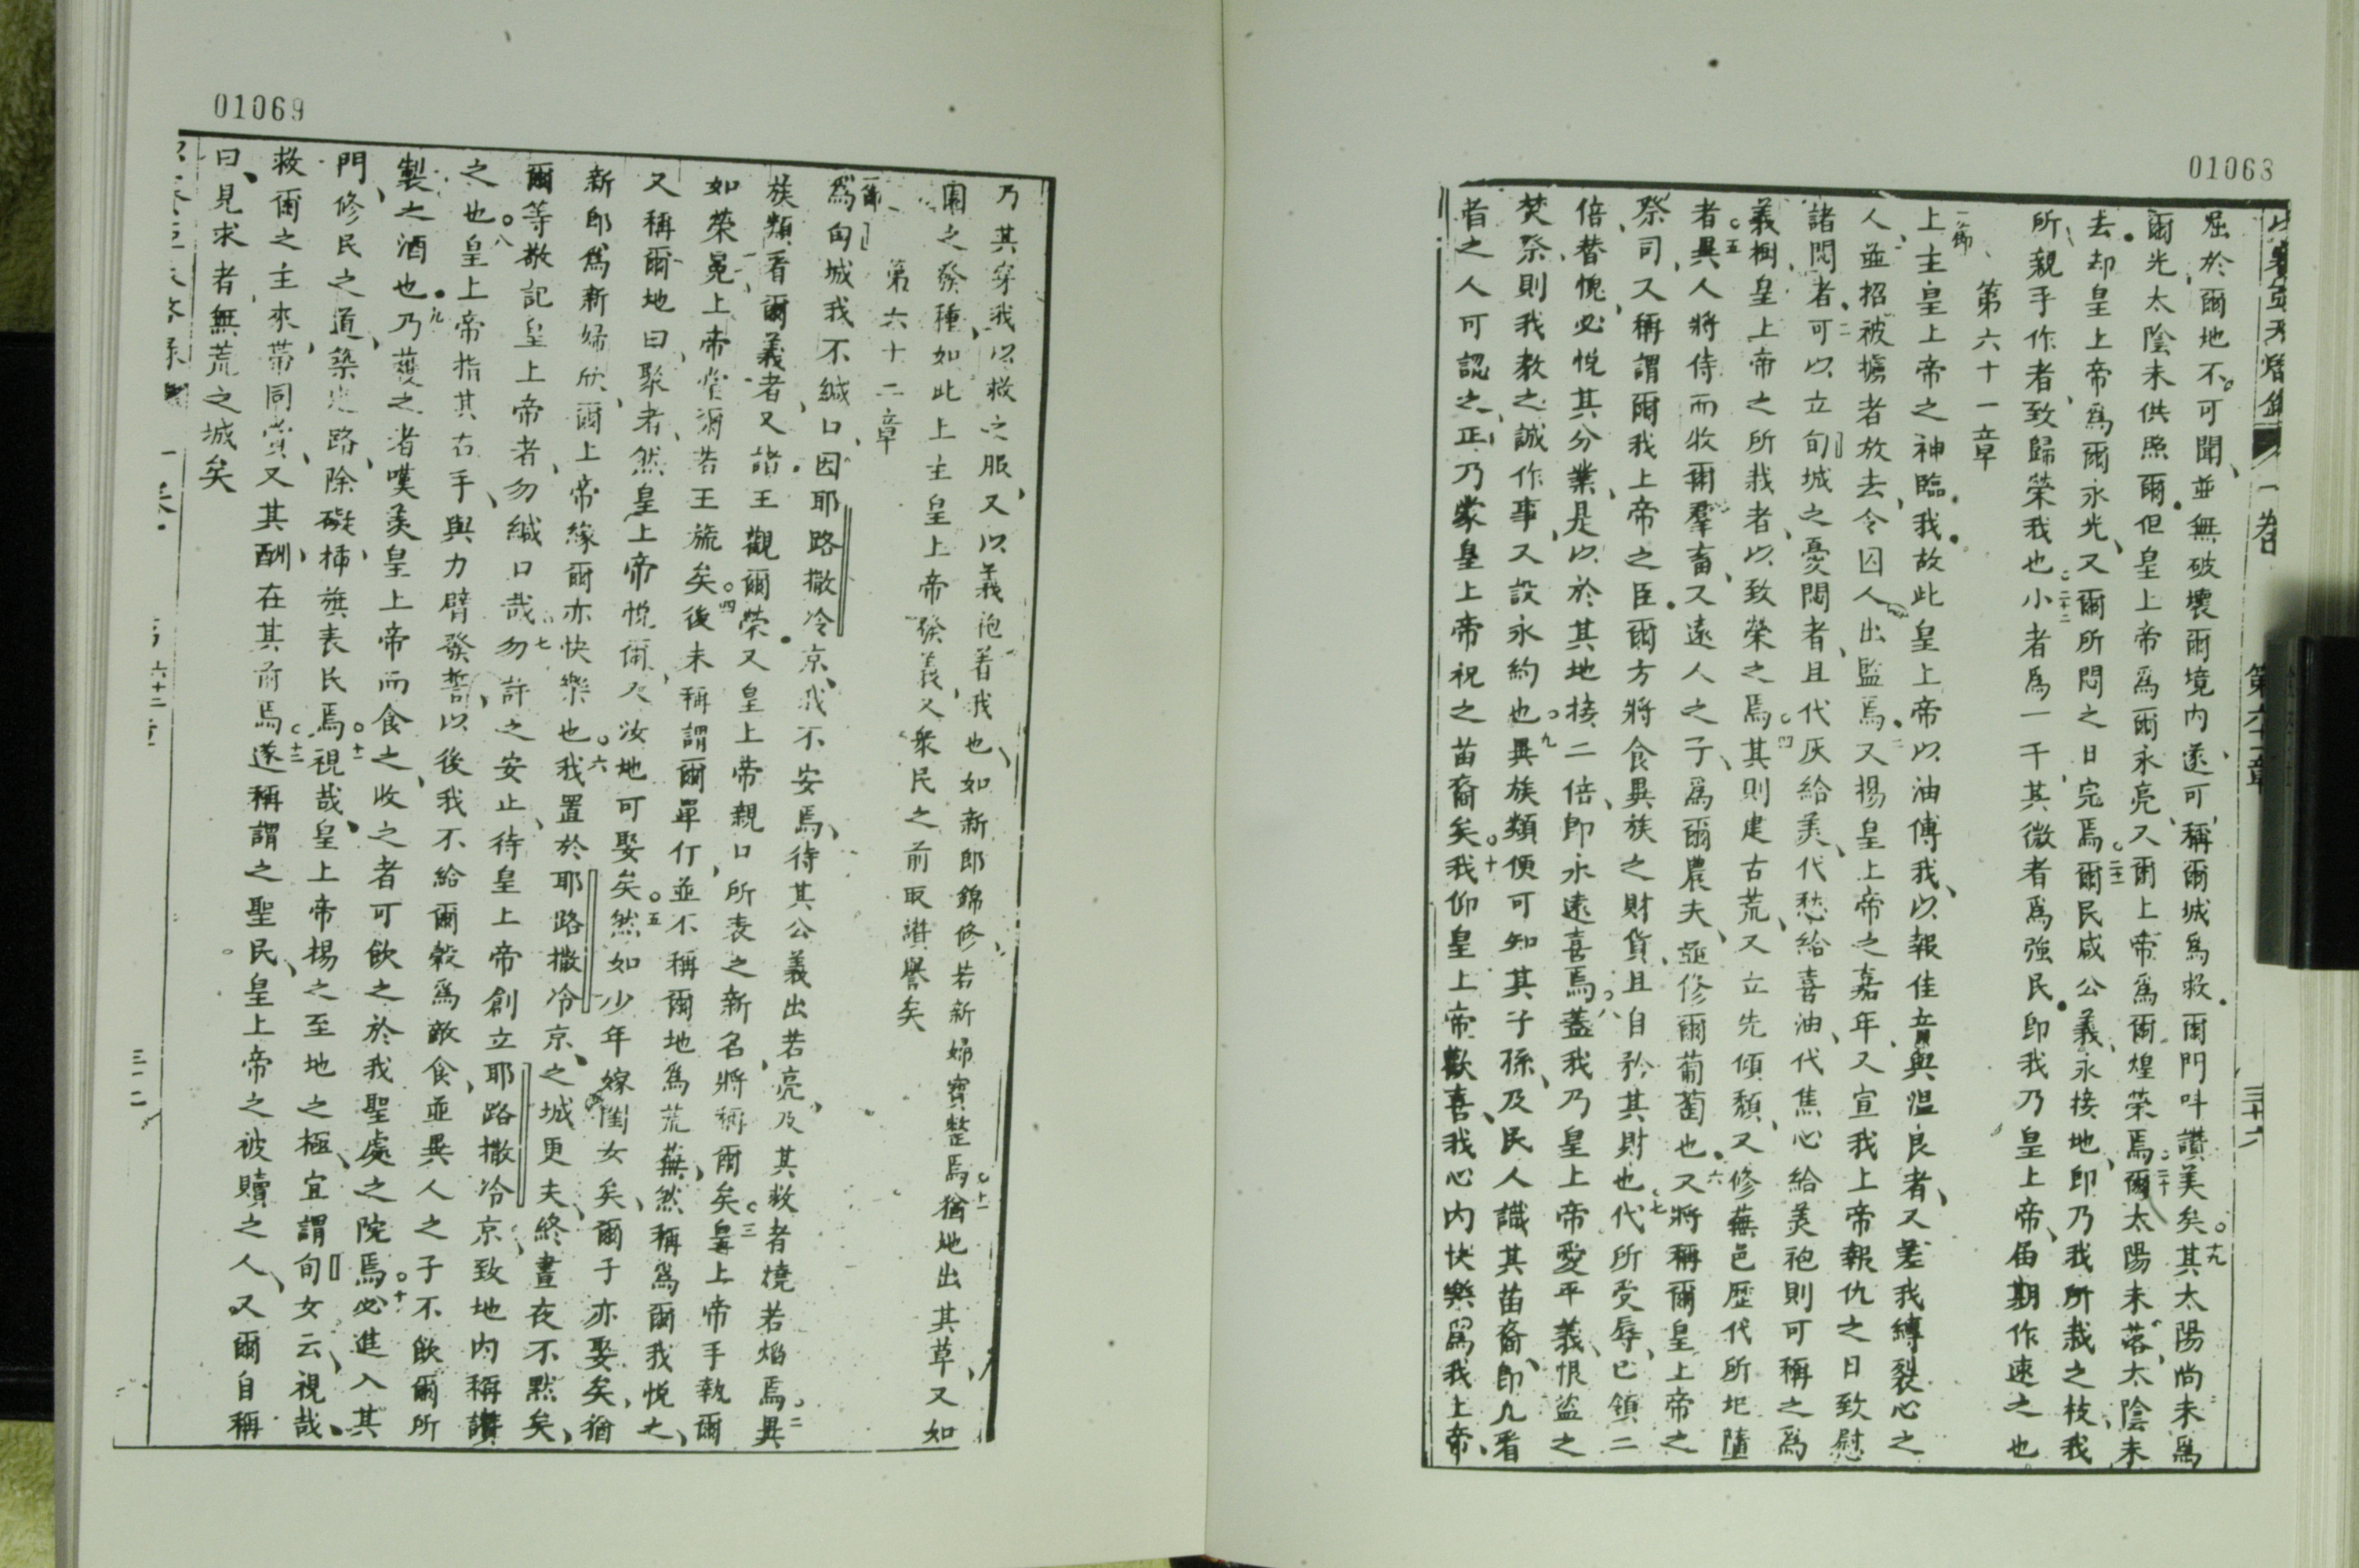 01068
屈於爾地不可聞並無破壞爾境内遂可稱爾城爲救爾門呌讚美矣十九其太陽尚未爲
爾光太陰未供照爾但皇上帝爲爾永亮又爾上帝爲爾煌榮焉二十爾太陽未落太陰未
去却皇上帝爲爾永光又爾所悶之日完焉二十一爾民咸公義永接地即乃我所栽之枝我
所親手作者致歸榮我也二十二小者爲一千其微者爲強民即我乃皇上帝届期作速之也
第六十一章
一節上主皇上帝之神臨我故此皇上帝以油傅我以報佳音與温良者又差我縛裂心之
人並招被擄者放去令囚人出監焉二又揚皇上帝之嘉年又宣我上帝報仇之日致慰
諸悶者三可以立旬城之憂悶者且代灰給美代愁給喜油代焦心給美袍則可稱之爲
義樹皇上帝之所栽者以致榮之焉四其則建古荒又立先傾頽又修蕪邑歷代所圯墮
者五異人將侍而牧爾羣畜又遠人之子爲爾農夫並修爾葡萄也六又將稱爾皇上帝之
祭司又稱謂爾我上帝之臣爾方將食異族之財貨且自矜其財也七代所受辱已領二
倍替愧必悦其分業是以於其地接二倍即永遠喜焉八蓋我乃皇上帝愛平義恨盜之
焚祭則我教之誠作事又設永約也九異族類便可知其子孫及民人識其苗裔即凡看
者之人可認之正乃蒙皇上帝祝之苗裔矣十我仰皇上帝歡喜我心内快樂爲我上帝
第六十一章
三十六
01069
乃其穿我以救之服又以義袍着我也如新郎錦修若新婦寶整焉十一猶地出其草又如
園之發種如此上主皇上帝發義又衆民之前取讃譽矣
第六十二章
一節爲旬城我不緘口因耶路撒冷京我不安焉待其公義出若亮及其救者燒若焰焉二異
族類看爾義者又諸王觀爾榮又皇上帝親口所表之新名將稱爾矣三皇上帝手執爾
如榮冕上帝掌濔若王旒矣四後未稱謂爾單仃並不稱爾地爲荒蕪然稱爲爾我悦之
又稱爾地曰聚者然皇上帝悦爾又汝地可娶矣五然如少年嫁閨女矣爾子亦娶矣猶
新郎爲新婦欣爾上帝緣爾亦快樂也六我置於耶路撒冷京之城更夫終晝夜不默矣
爾等敬記皇上帝者勿緘口哉七勿許之安止待皇上帝創立耶路撒冷京致地内稱讃
之也八皇上帝指其右手與力臂發誓以後我不給爾穀爲敵食並異人之子不飲爾所
製之酒也九乃穫之者嘆美皇上帝而食之收之者可飲之於我聖處之院焉十必進入其
門修民之道築路除礙揷旗表民焉十一視哉皇上帝揚之至地之極宜謂旬女云視哉
救爾之主來帶同賞又其酬在其前焉十二遂稱謂之聖民皇上帝之被贖之人又爾自稱
曰見求者無荒之城矣
六十二章